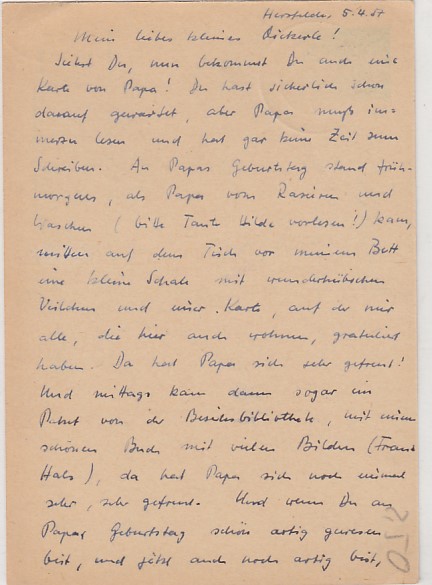 Hersfeld, 5.4.57
Mein liebes kleines
Siehst Du, nun bekommst Du auch eine
Karte von Papa! Du hast sicherlich schon
darauf gewartet, aber Papa muß im=
merzu lesen und hat gar keine Zeit zum
Schreiben. An Papas Geburtstag stand früh=
morgens, als Papa vom Rasieren und
Waschen (bitte Tante Hilde vorlesen!) kam,
mitten auf dem Tisch vor meinem Bett
eine kleine Schale mit wunderhübschen
Veilchen und einer Karte, auf der mir
alle, die hier auch wohnen, gratuliert
haben. Da hat Papa sich sehr gefreut!
Und mittags kam dann sogar ein
Paket von der Bezirksbibliothek, mit einem
schönen Buch mit vielen Bildern (Frans
Hals), da hat Papa sich noch einmal
sehr, sehr gefreut. Und wenn Du an
Papas Geburtstag schön artig gewesen
bist, und jetzt auch noch artig bist,